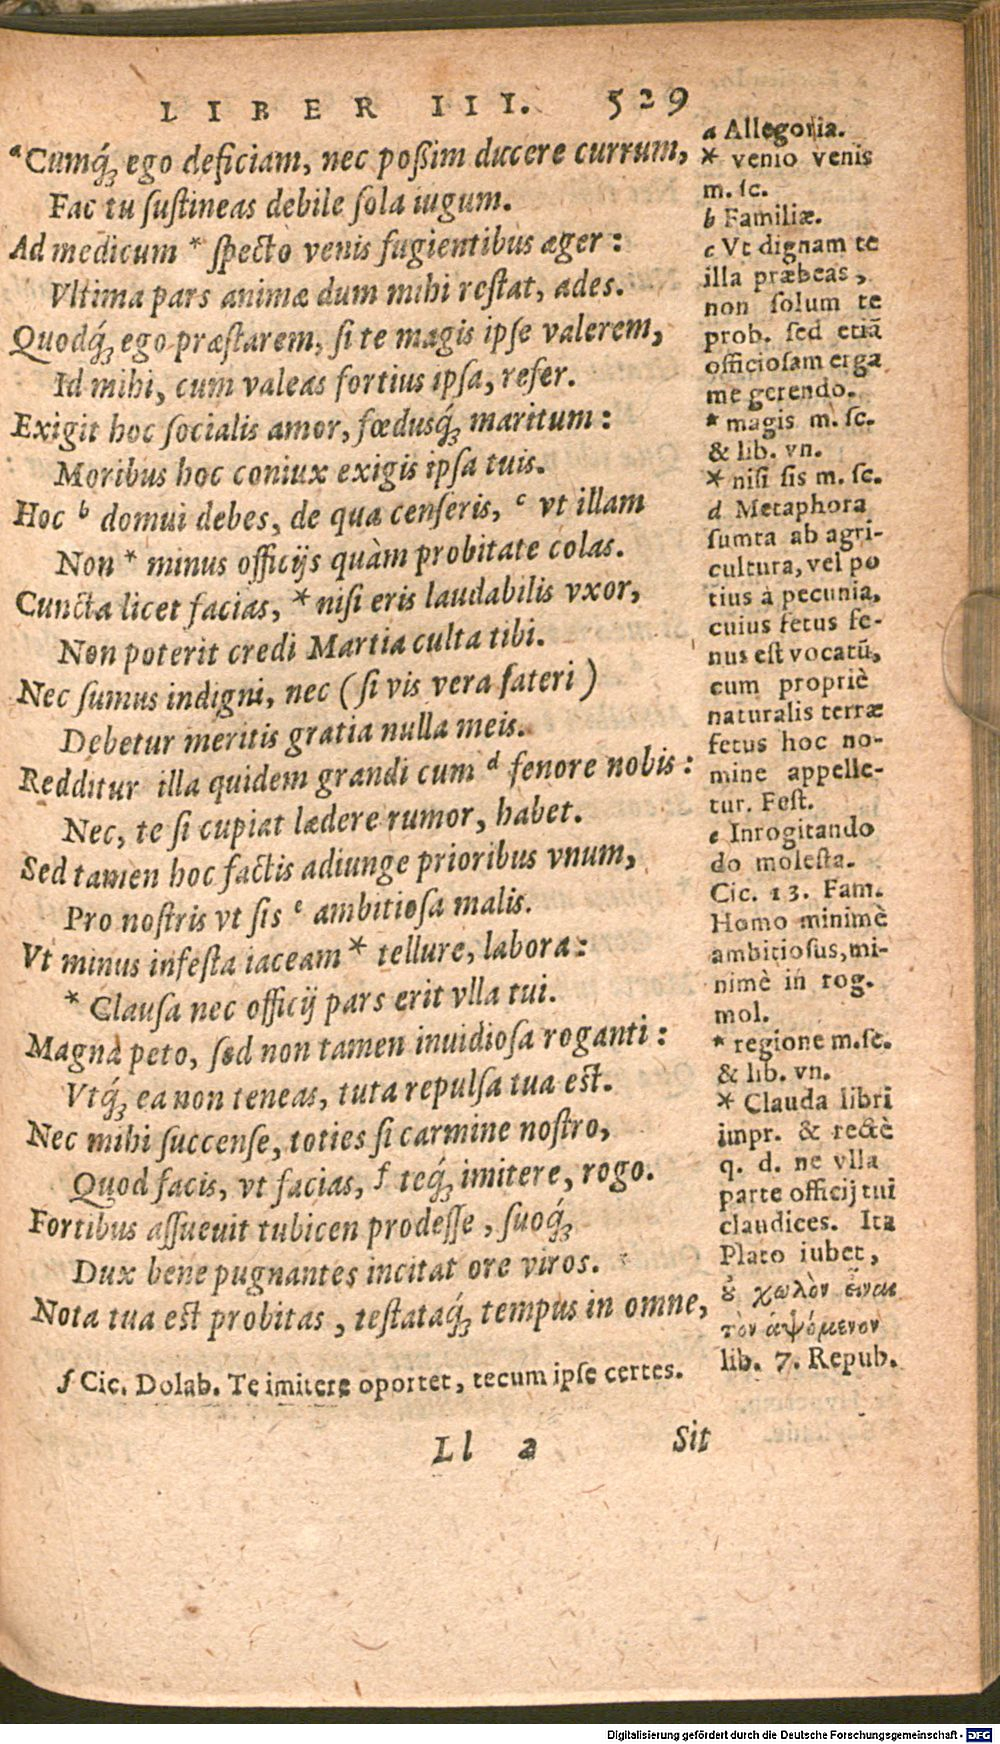 LIBER III. 529
ᵃCumq́ꝫ ego deficiam, nec poßim ducere currum,
Fac tu ſuſtineas debile ſola iugum.
Ad medicum * ſpecto venis fugientibus æger:
Vltima pars animæ dum mihi reſtat, ades.
Quodq́ꝫ ego præſtarem, ſi te magis ipſe valerem,
Id mihi, cum valeas fortius ipſa, refer.
Exigit hoc ſocialis amor, fœdusq́ꝫ maritum:
Moribus hoc coniux exigis ipſa tuis.
Hoc ᵇ domui debes, de qua cenſeris, ᶜ vt illam
Non * minus officijs quàm probitate colas.
Cuncta licet facias, * niſi eris laudabilis vxor,
Non poterit credi Martia culta tibi.
Nec ſumus indigni, nec (ſi vis vera fateri)
Debetur meritis gratia nulla meis.
Redditur illa quidem grandi cum ᵈ fenore nobis:
Nec, te ſi cupiat lædere rumor, habet.
Sed tamen hoc factis adiunge prioribus vnum,
Pro noſtris vt ſis ᵉ ambitioſa malis.
Vt minus infeſta iaceam * tellure, labora:
* Clauſa nec officij pars erit vlla tui.
Magna peto, ſed non tamen inuidioſa roganti:
Vtq́ꝫ ea non teneas, tuta repulſa tua eſt.
Nec mihi ſuccenſe, toties ſi carmine noſtro,
Quod facis, vt facias, ᶠ teq́ꝫ imitere, rogo.
Fortibus aſſueuit tubicen prodeſſe, ſuoq́ꝫ
Dux bene pugnantes incitat ore viros.
Nota tua eſt probitas, teſtataq́ꝫ tempus in omne,
a Allegoria.
* venio venis
m. ſc.
b Familiæ.
c Vt dignam te
illa præbeas,
non ſolum te
prob. ſed etiā
officioſam erga
me gerendo.
* magis m. ſc.
& lib. vn.
* niſi ſis m. ſc.
d Metaphora
ſumta ab agri-
cultura, vel po
tius à pecunia,
cuius fetus fe-
nus eſt vocatū,
cum propriè
naturalis terræ
fetus hoc no-
mine appelle-
tur. Feſt.
e Inrogitando
do moleſta.
Cic. 13. Fam.
Homo minimè
ambitioſus, mi-
nimè in rog.
mol.
* regione m. ſc.
& lib. vn.
* Clauda libri
impr. & rectè
q. d. ne vlla
parte officij tui
claudices. Ita
Plato iubet,
ȣ̓ χωλὸν εἶναι
τὸν ἁψόμενον
lib. 7. Repub.
f Cic. Dolab. Te imitere oportet, tecum ipſe certes.
Ll 2 Sit
Digitalisierung gefördert durch die Deutsche Forschungsgemeinschaft - DFG